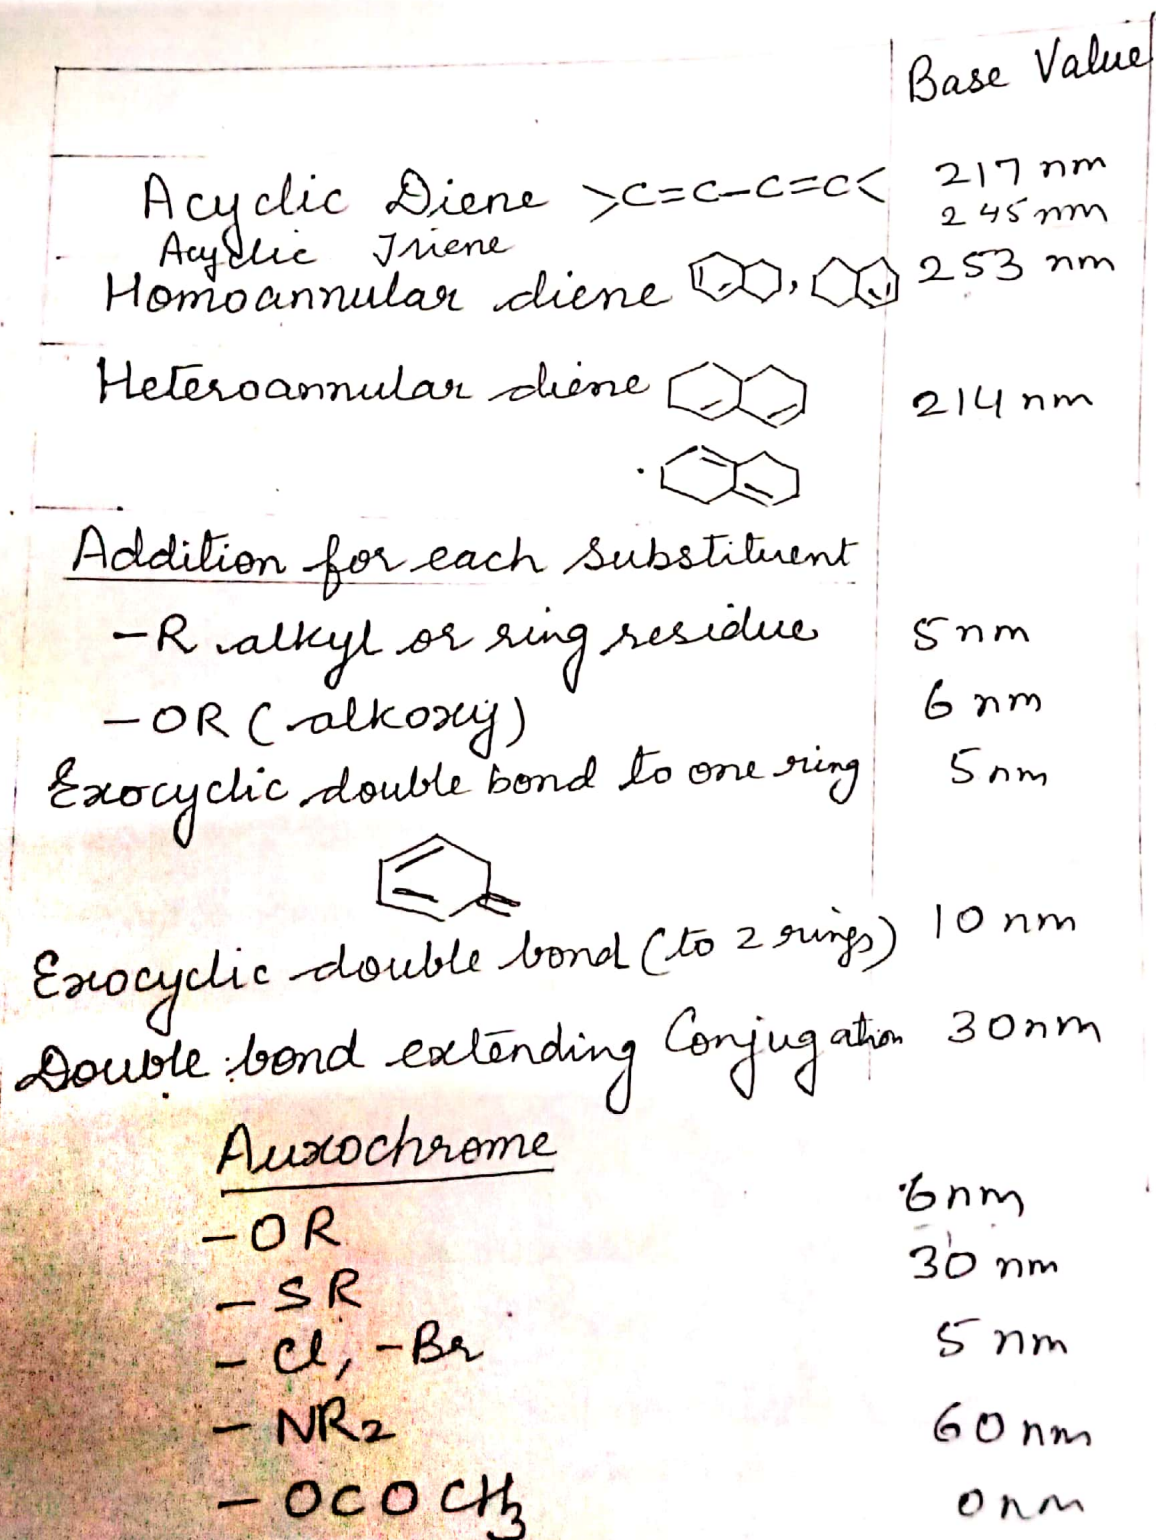 Base Value
Acyclic Diene >C=C-C=C< 217 nm
Acyclic Triene 245 nm
Homoannular diene , 253 nm
Heteroannular diene 214 nm
Addition for each substituent
-R alkyl or ring residue 5nm
-OR (alkoxy) 6 nm
Exocyclic double bond to one ring 5nm
Exocyclic double bond (to 2 rings) 10 nm
Double bond extending Conjugation 30nm
Auxochrome
-OR 6nm
-SR 30 nm
-Cl, -Br 5 nm
-NR2 60 nm
-OCOCH3 0nm